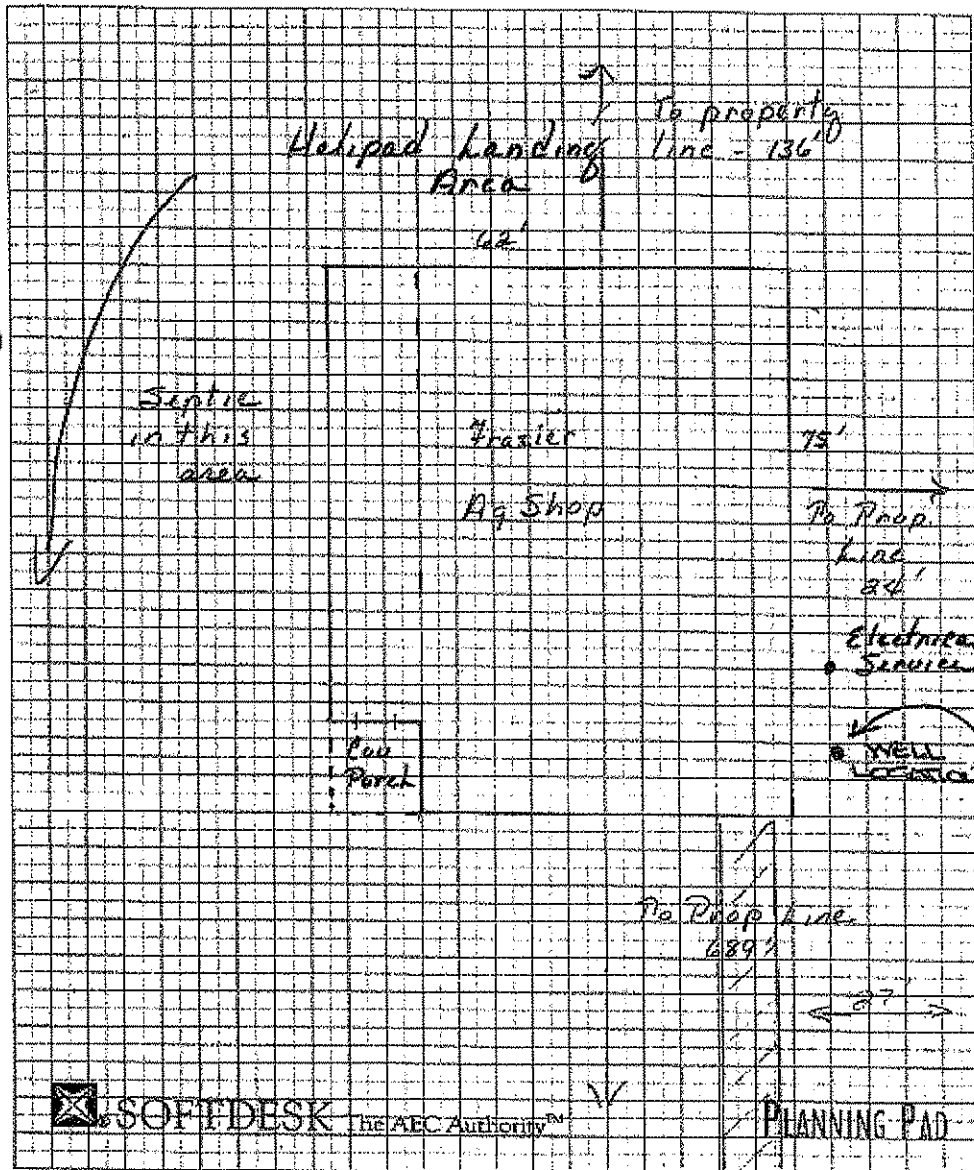 To property
line - 136'
Helipad Landing
Area
62'
Septic
in this
area
Frazier
Ag Shop
75'
To Prop
Line
24'
Electrical
Service
Cov
Porch
WELL
LOCATION
To Prop Line
689'
27'
SOFTDESK The AEC Authority™
PLANNING PAD